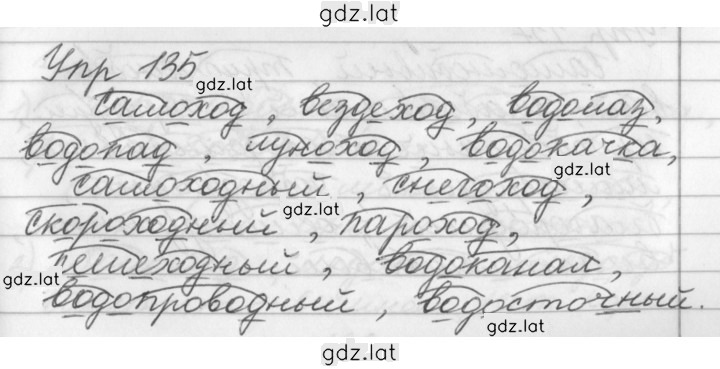 gdz.lat
Упр 135
gdz.lat
самоход, вездеход, водолаз,
водопад, луноход, водокачка,
gdz.lat
самоходный, снегоход,
gdz.lat
скороходный, пароход,
пешеходный, водоканал,
gdz.lat
водопроводный, водосточный.
gdz.lat
gdz.lat